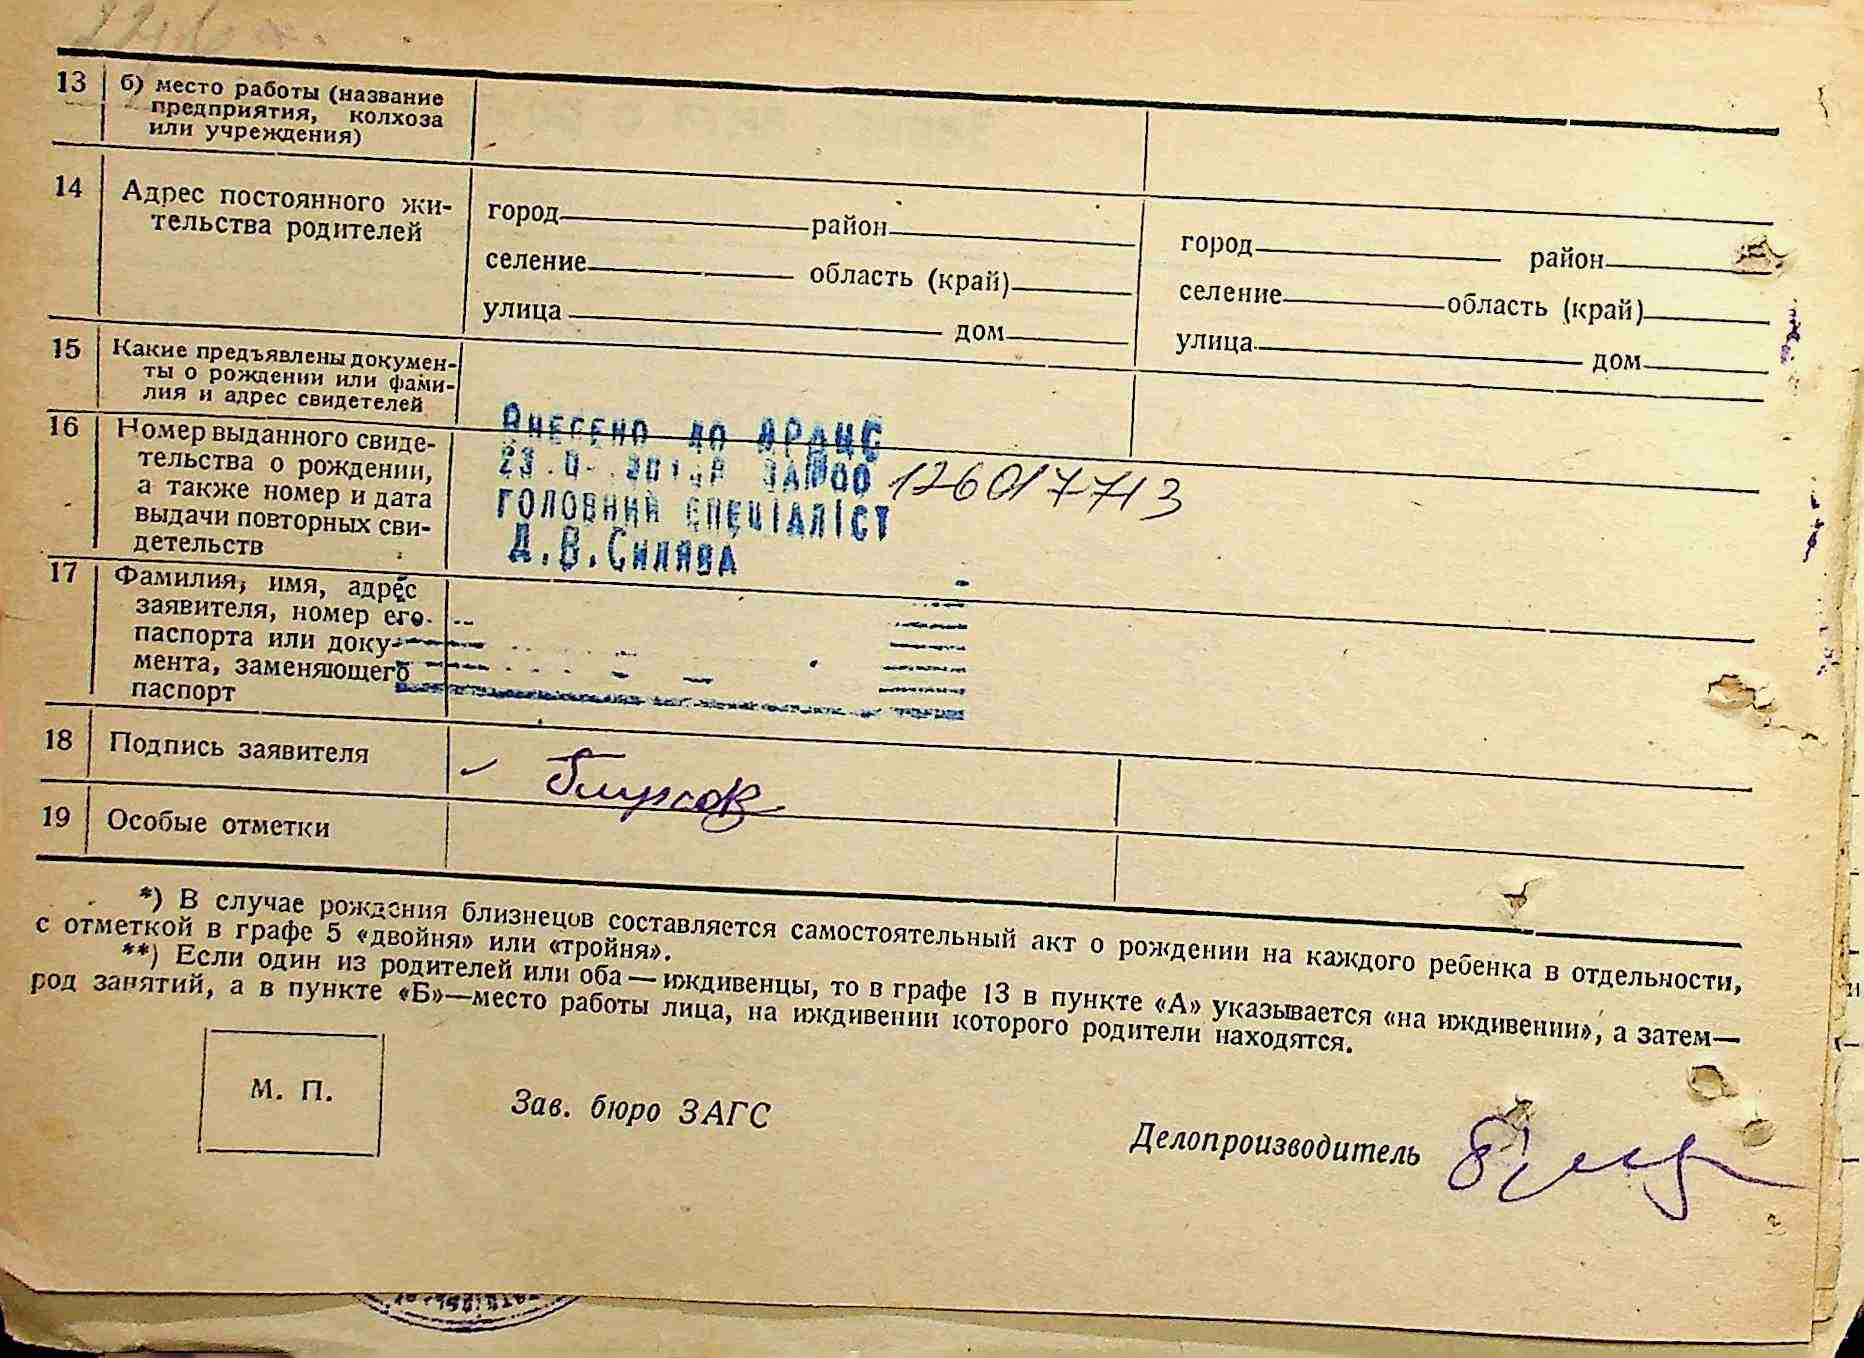 13 б) место работы (название
предприятия, колхоза
или учреждения)
14 Адрес постоянного жи-
тельства родителей
город район
селение область (край)
улица дом
город район
селение область (край)
улица дом
15 Какие предъявлены докумен-
ты о рождении или фами-
лия и адрес свидетелей
16 Номер выданного свиде-
тельства о рождении,
а также номер и дата
выдачи повторных сви-
детельств
ВНЕСЕНО ДО ДРАЦС
ЗА №00 126017713
ГОЛОВНИЙ СПЕЦІАЛІСТ
Д.В.Силява
17 Фамилия, имя, адрес
заявителя, номер его
паспорта или доку-
мента, заменяющего
паспорт
18 Подпись заявителя
19 Особые отметки
*) В случае рождения близнецов составляется самостоятельный акт о рождении на каждого ребенка в отдельности,
с отметкой в графе 5 «двойня» или «тройня».
**) Если один из родителей или оба—иждивенцы, то в графе 13 в пункте «А» указывается «на иждивении», а затем—
род занятий, а в пункте «Б»—место работы лица, на иждивении которого родители находятся.
М. П.
Зав. бюро ЗАГС
Делопроизводитель